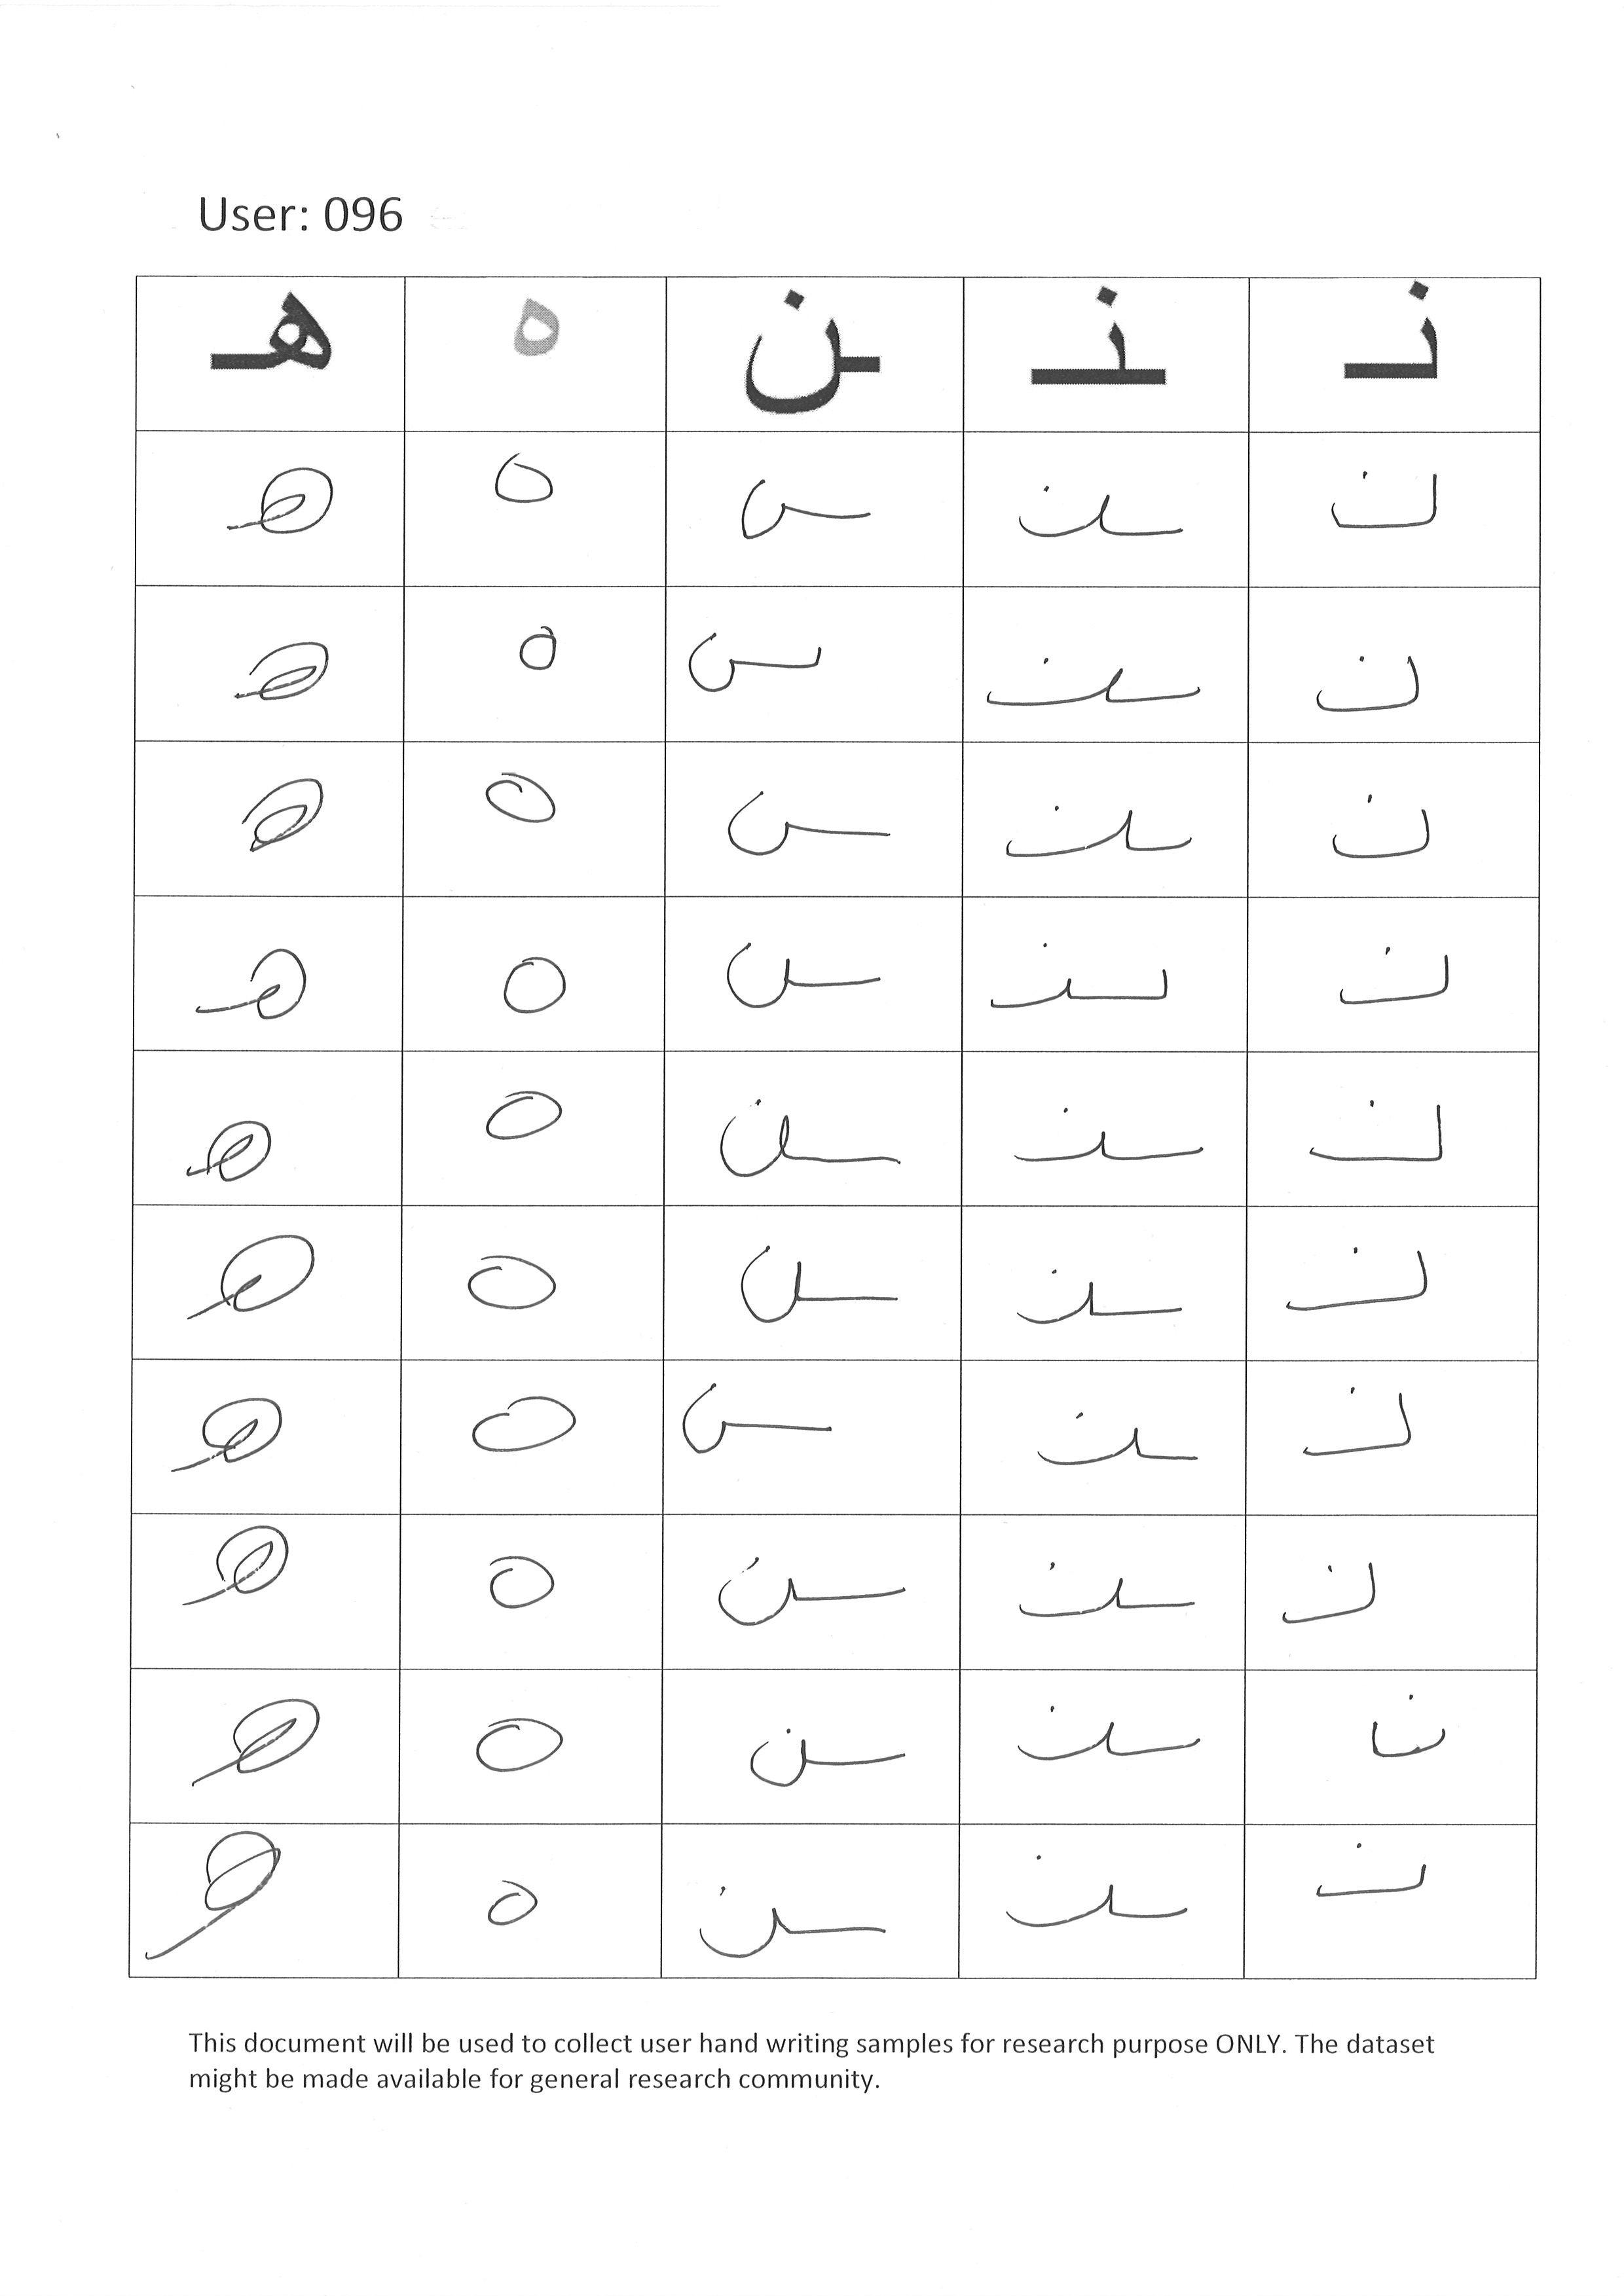 User: 096
نـ ـنـ ـن ه هـ
نـ ـنـ ـن ه هـ
نـ ـنـ ـن ه هـ
نـ ـنـ ـن ه هـ
نـ ـنـ ـن ه هـ
نـ ـنـ ـن ه هـ
نـ ـنـ ـن ه هـ
نـ ـنـ ـن ه هـ
نـ ـنـ ـن ه هـ
نـ ـنـ ـن ه هـ
نـ ـنـ ـن ه هـ
This document will be used to collect user hand writing samples for research purpose ONLY. The dataset
might be made available for general research community.